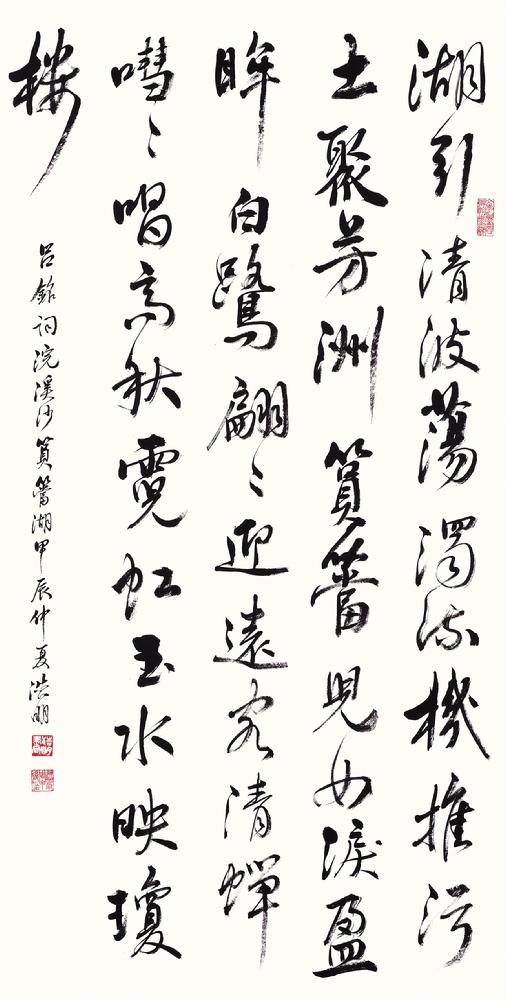 湖引清波蕩濁流機推污
土聚芳洲篔簹兒女淚盈
眸白鷺翩〻迎遠客清蟬
嘒〻唱高秋霓虹玉水映瓊
樓
呂銘詞浣溪沙篔簹湖甲辰仲夏浩明